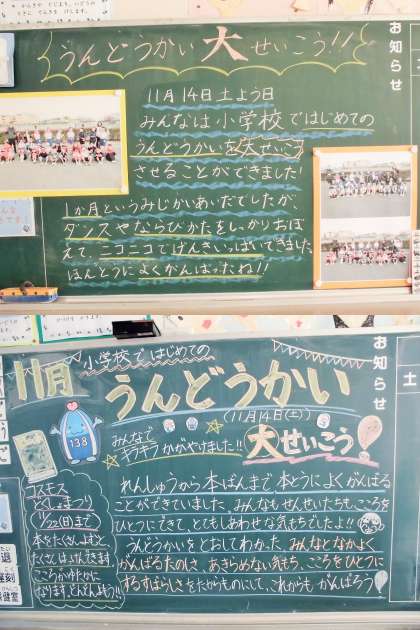 うんどうかい大せいこう!!
お知らせ
土
11月14日土よう日
みんなは小学校ではじめての
うんどうかいを大せいこう
させることができました!
1か月というみじかいあいだでしたが、
ダンスやならびかたをしっかりおぼ
えて、ニコニコでげんきいっぱいできました。
ほんとうによくがんばったね!!
11月
小学校ではじめての
うんどうかい
(11月14日(土))
お知らせ
土
138
みんなで
キラキラかがやけました!!
大せいこう!
れんしゅうから本ばんまで本とうによくがんばる
ことができていました。みんなもせんせいたちも、こころを
ひとつにできて、とてもしあわせな気もちでしたよ!!
うんどうかいをとおしてわかった、みんなとなかよく
がんばるたのしさ、あきらめない気もち、こころをひとつに
するすばらしさをたからものにして、これからもがんばろう!
コスモス
どくしょまつり
11/22(日)まで
本をたくさんよむと
こころがゆたかに
なります。どんどんよもう!!
退
遅刻
保健室